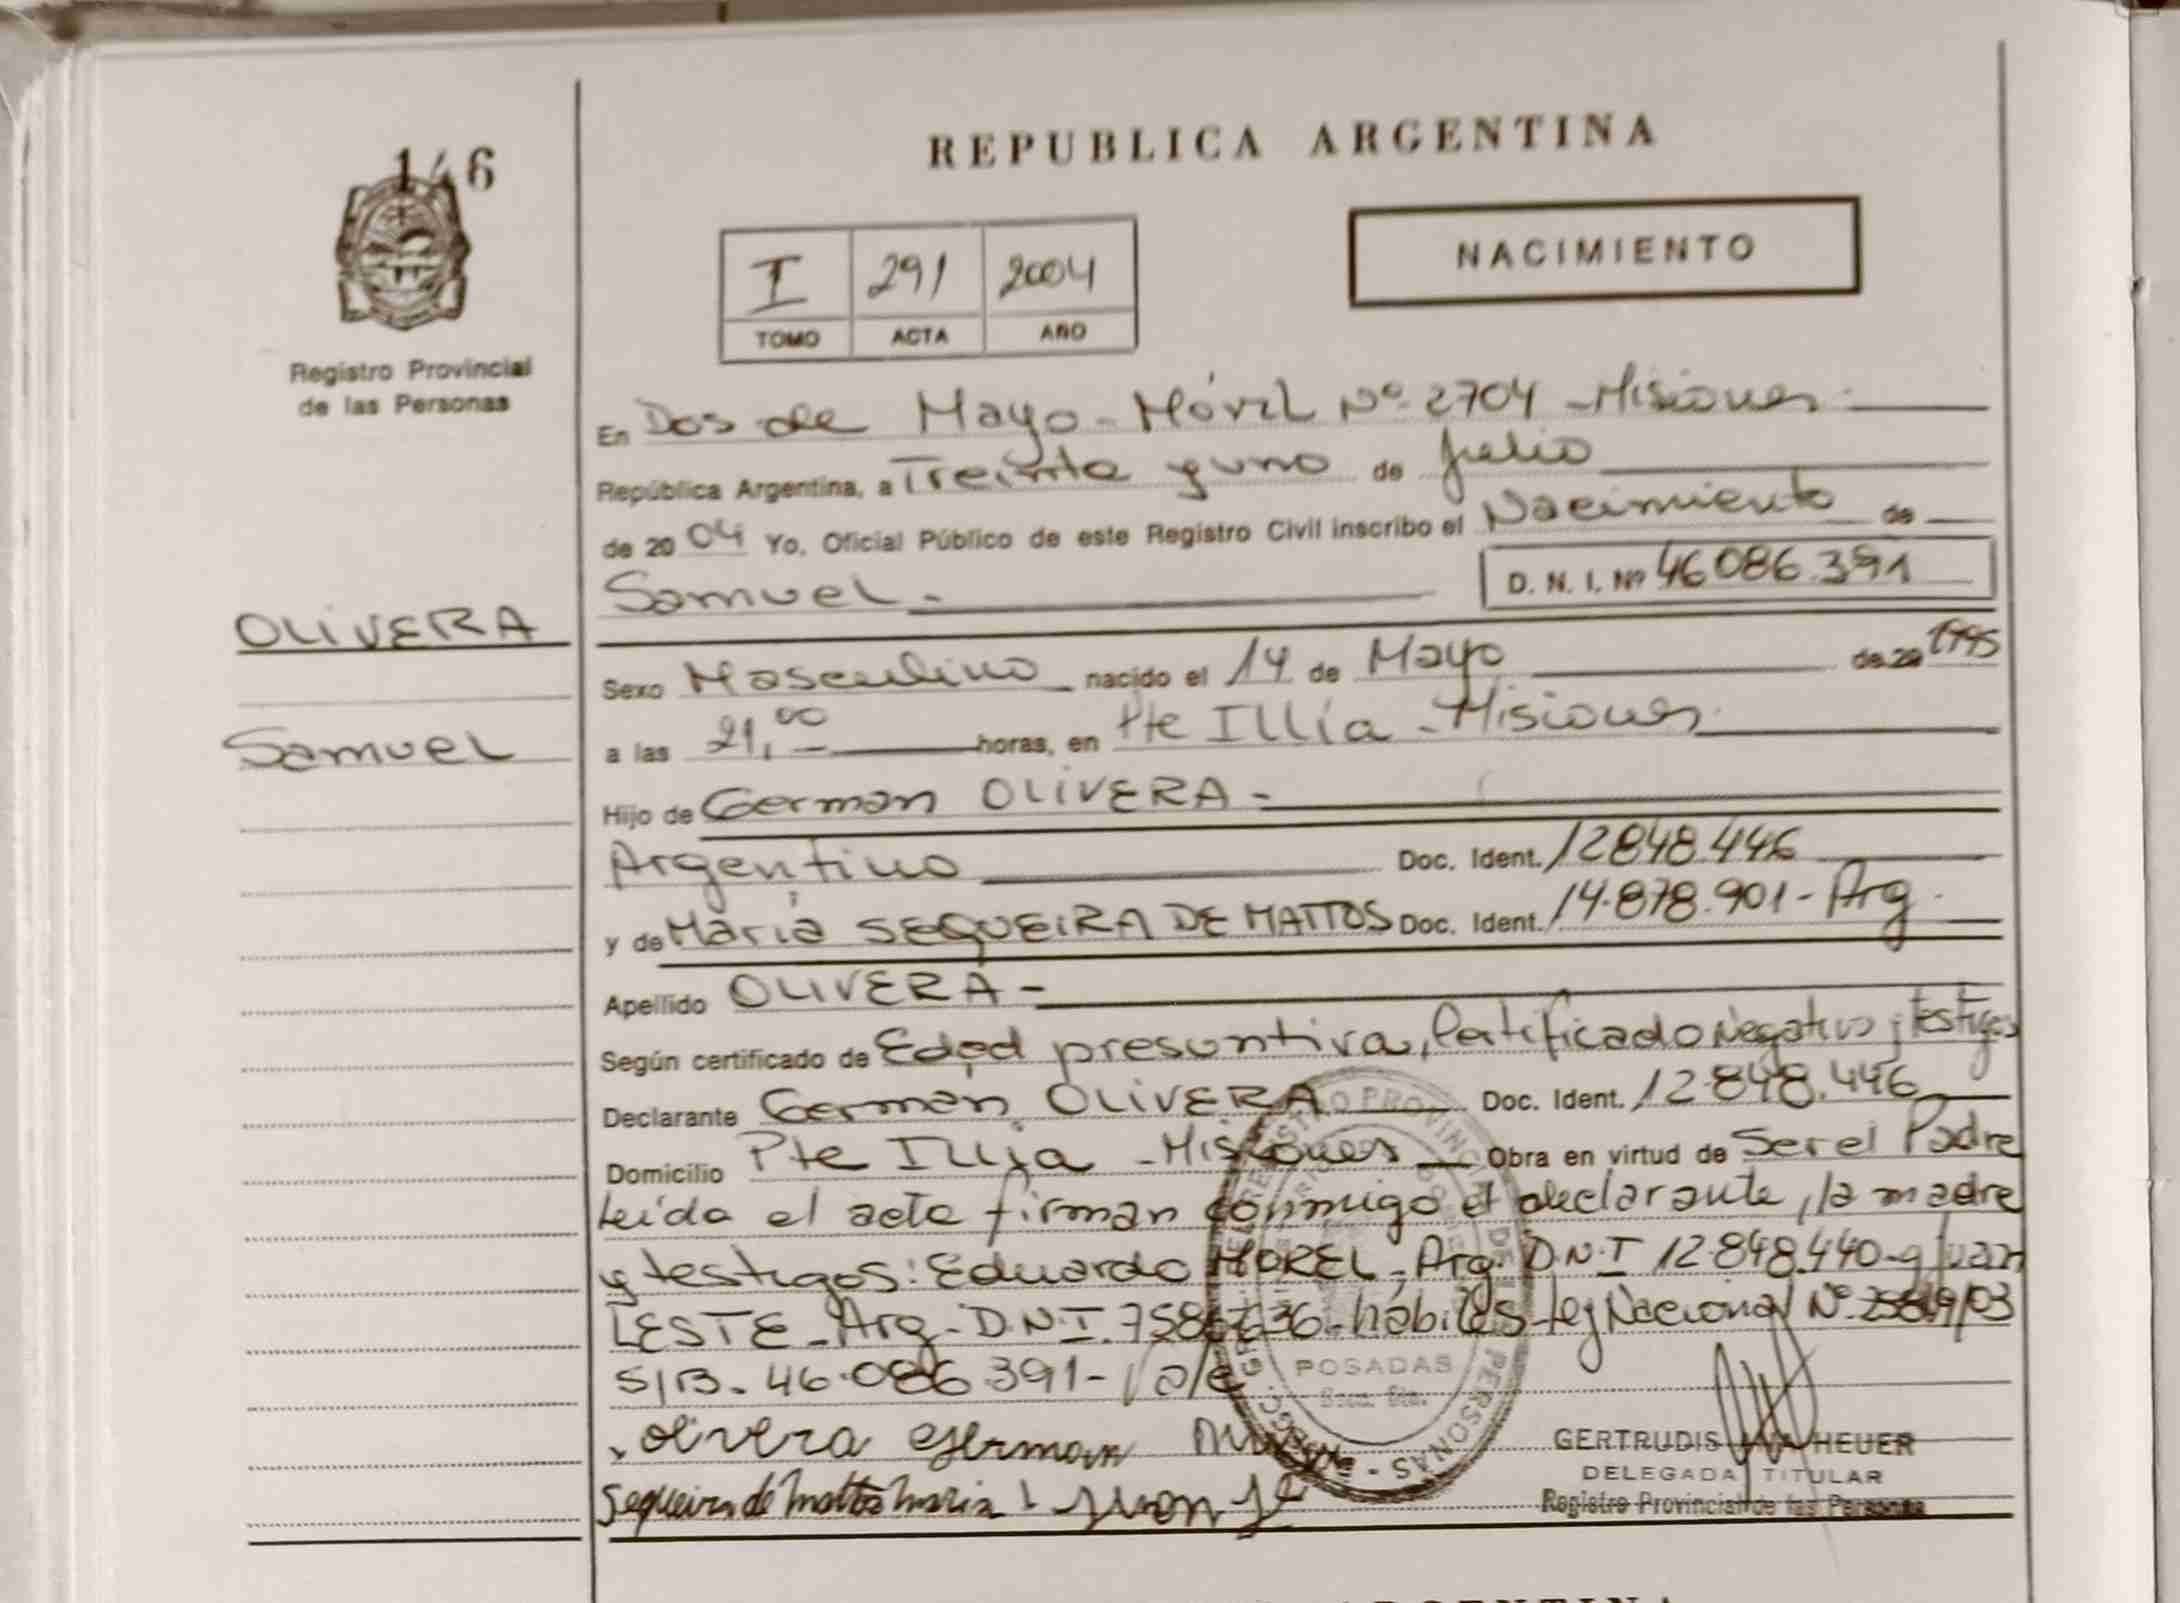 146
Registro Provincial
de las Personas
REPUBLICA ARGENTINA
NACIMIENTO
I 291 2004
TOMO ACTA AÑO
En Dos de Mayo - Móvil Nº 2704 - Misiones
República Argentina, a Treinta y uno de Julio
de 2004 Yo, Oficial Público de este Registro Civil inscribo el Nacimiento de
Samuel - D. N. I. Nº 46086.391
OLIVERA
Samuel
Sexo Masculino nacido el 14 de Mayo de 20 1995
a las 21,00 horas, en Pte Illía - Misiones
Hijo de German OLIVERA -
Argentino Doc. Ident. 12848.446
y de María SEQUEIRA DE MATTOS Doc. Ident. 14.878.901 - Arg.
Apellido OLIVERA -
Según certificado de Edad presuntiva, Certificado Negativo y testigos
Declarante Germán OLIVERA Doc. Ident. 12.848.446
Domicilio Pte Illia - Misiones Obra en virtud de Ser el Padre
Leída el acta firman conmigo el declarante, la madre
y testigos: Eduardo MOREL - Arg. D.N.I 12.848.440 - y Juan
LESTE - Arg - D.N.I. hábiles - Ley Nacional Nº
S/B. 46.086.391 -
POSADAS
olivera German
Sequeira de mattos maria Juan
GERTRUDIS HEUER
DELEGADA TITULAR
Registro Provincial de las Personas